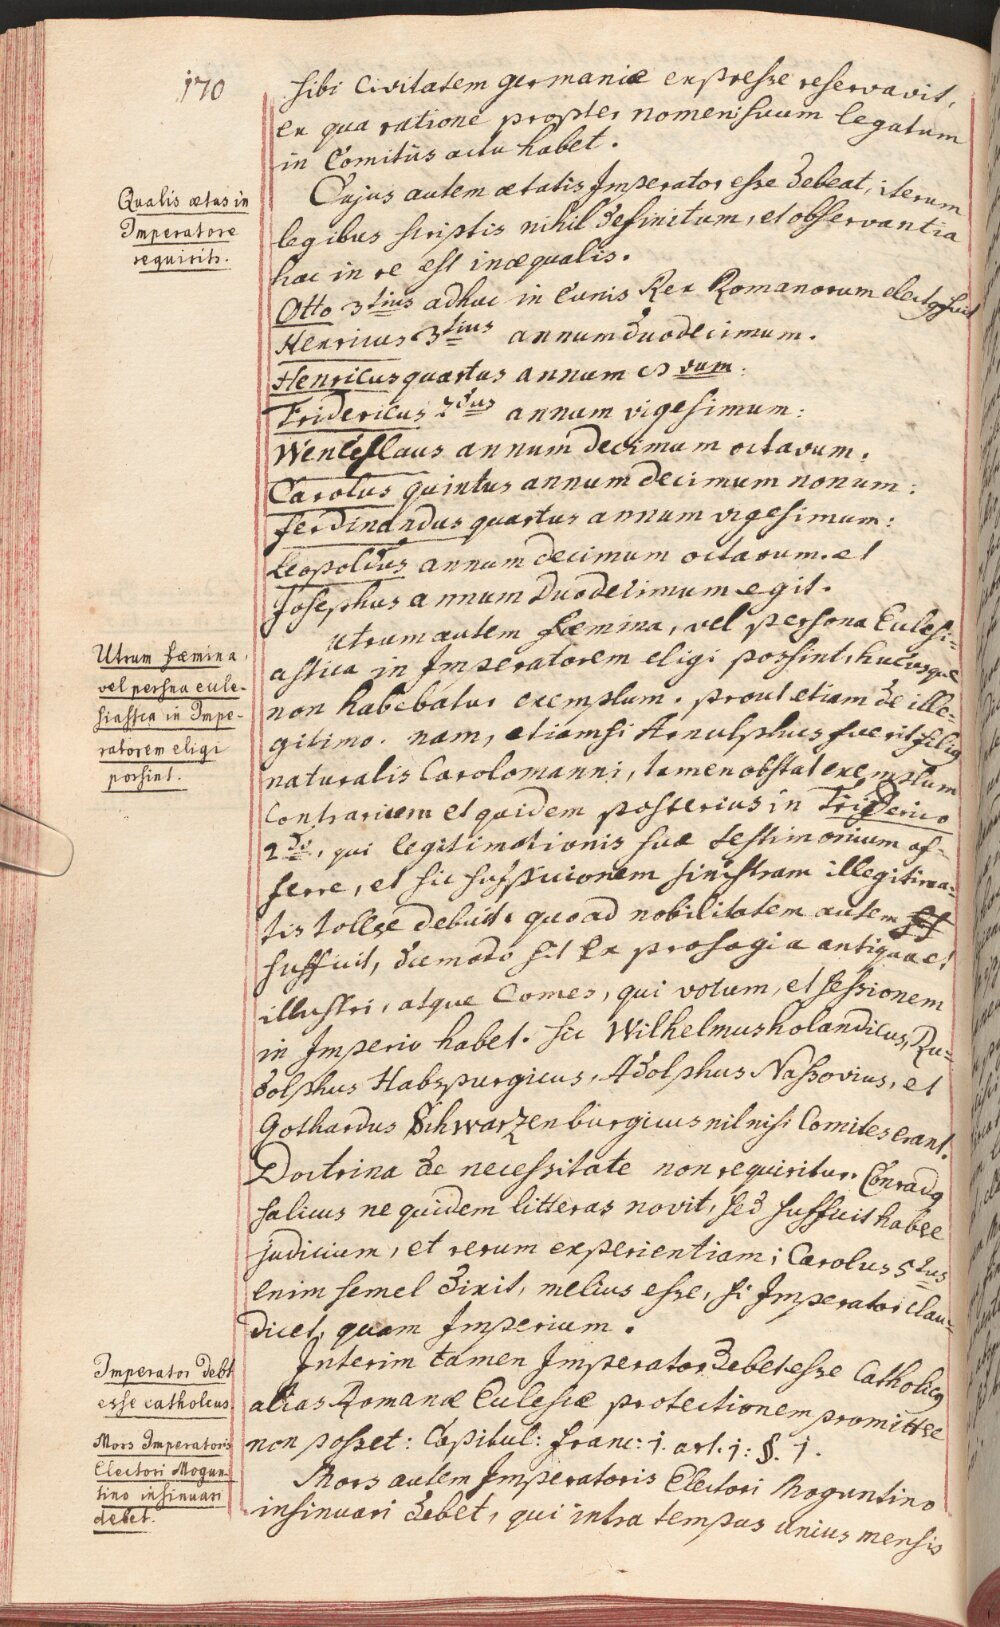 170
sibi Civitatem germaniæ expresse reservavit,
ex qua ratione propter nomen suum legatum
in Comitiis actu habet.
Qualis ætas in
Imperatore
requirit.
Cujus autem ætatis Imperator esse debeat, iterum
legibus scriptis nihil definitum, et observantia
hac in re est inæqualis.
Otto 3tius adhuc in Cunis Rex Romanorum elect9 fuit
Henricus 3tius annum duodecimum.
Henricus quartus annum vum:
Fridericus 2dus annum vigesimum:
Wenceslaus annum decimum octavum.
Carolus quintus annum decimum nonum:
ferdinandus quartus annum vigesimum:
Leopoldus annum decimum octavum. et
Josephus annum duodecimum egit.
Utrum fæmina,
vel persna eccle-
siastica in Impe-
ratorem eligi
possint.
Utrum autem fæmina, vel persona Ecclesi-
astica in Imperatorem eligi possint, hucusque
non habebatur exemplum. prout etiam de ille-
gitimo. nam, etiamsi Arnulphus fuerit fili9
naturalis Carolomanni, tamen obstat exemplum
Contrarium et quidem posterius in Friderico
2do, qui legitimationis suæ testimonium af-
ferre, et sic suspicionem sinistram illegitima-
tis tollere debuit. quoad nobilitatem autem
sufficit, dummodo sit ex prosagia antiqua et
illustri, atque Comes, qui votum, et sessionem
in Imperio habet. sic Wilhelmus holandicus, Ru-
dolphus Habspurgicus, Adolphus Nassovius, et
Gothardus Schwarzenburgicus nil nisi Comites erant.
Doctrina de necessitate non requiritur. Conrad9
salicus ne quidem litteras novit, sed sufficit habere
judicium, et rerum experientiam; Carolus 5tus
enim semel dixit, melius esse, si Imperator clau-
dicet, quam Imperium.
Imperator debt
esse catholicus
Interim tamen Imperator debet esse Catholic9
alias Romanæ Ecclesiæ protectionem promittere
non posset: Capitul: franc: j. art. j: §. j.
Mors Imperatoris
Electori Mogun-
tino insinuari
debet.
Mors autem Imperatoris Electori Moguntino
insinuari debet, qui intra tempus unius mensis